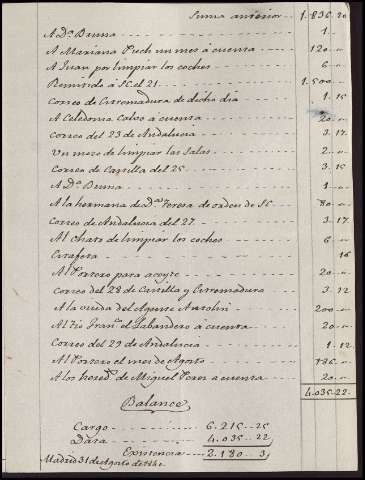 Suma anterior 1.836.20
A D.ª Bruna 1..
A Mariana Pech un mes á cuenta 120..
A Juan por limpiar los coches 6..
Remitido á S.E. el 21 1.500..
Correo de Extremadura de dicho dia 1.15
A Celedonia Calos á cuenta 20..
Correo del 23 de Andalucia 3.17
Un mozo de limpiar las Salas 2..
Correo de Castilla del 25 3.15
A D.ª Bruna 1..
A la hermana de D.ª Teresa de orden de S.E. 80..
Correo de Andalucia del 27 3.17
Al Chato de limpiar los coches 6..
16
Al Portero para aceyte 20..
Correo del 28 de Castilla y Extremadura 3.12
A la viuda del Agente 200..
Al tio Fran.co el Labandero á cuenta 20..
Correo del 29 de Andalucia 1.12
Al Portero el mes de Agosto 186..
A los hered.s de Miguel Peres á cuenta 20..
4.035.22.
Balance
Cargo 6.215..25
Data 4.035..22
Existencia 2.180..3
Madrid 31 de Agosto de